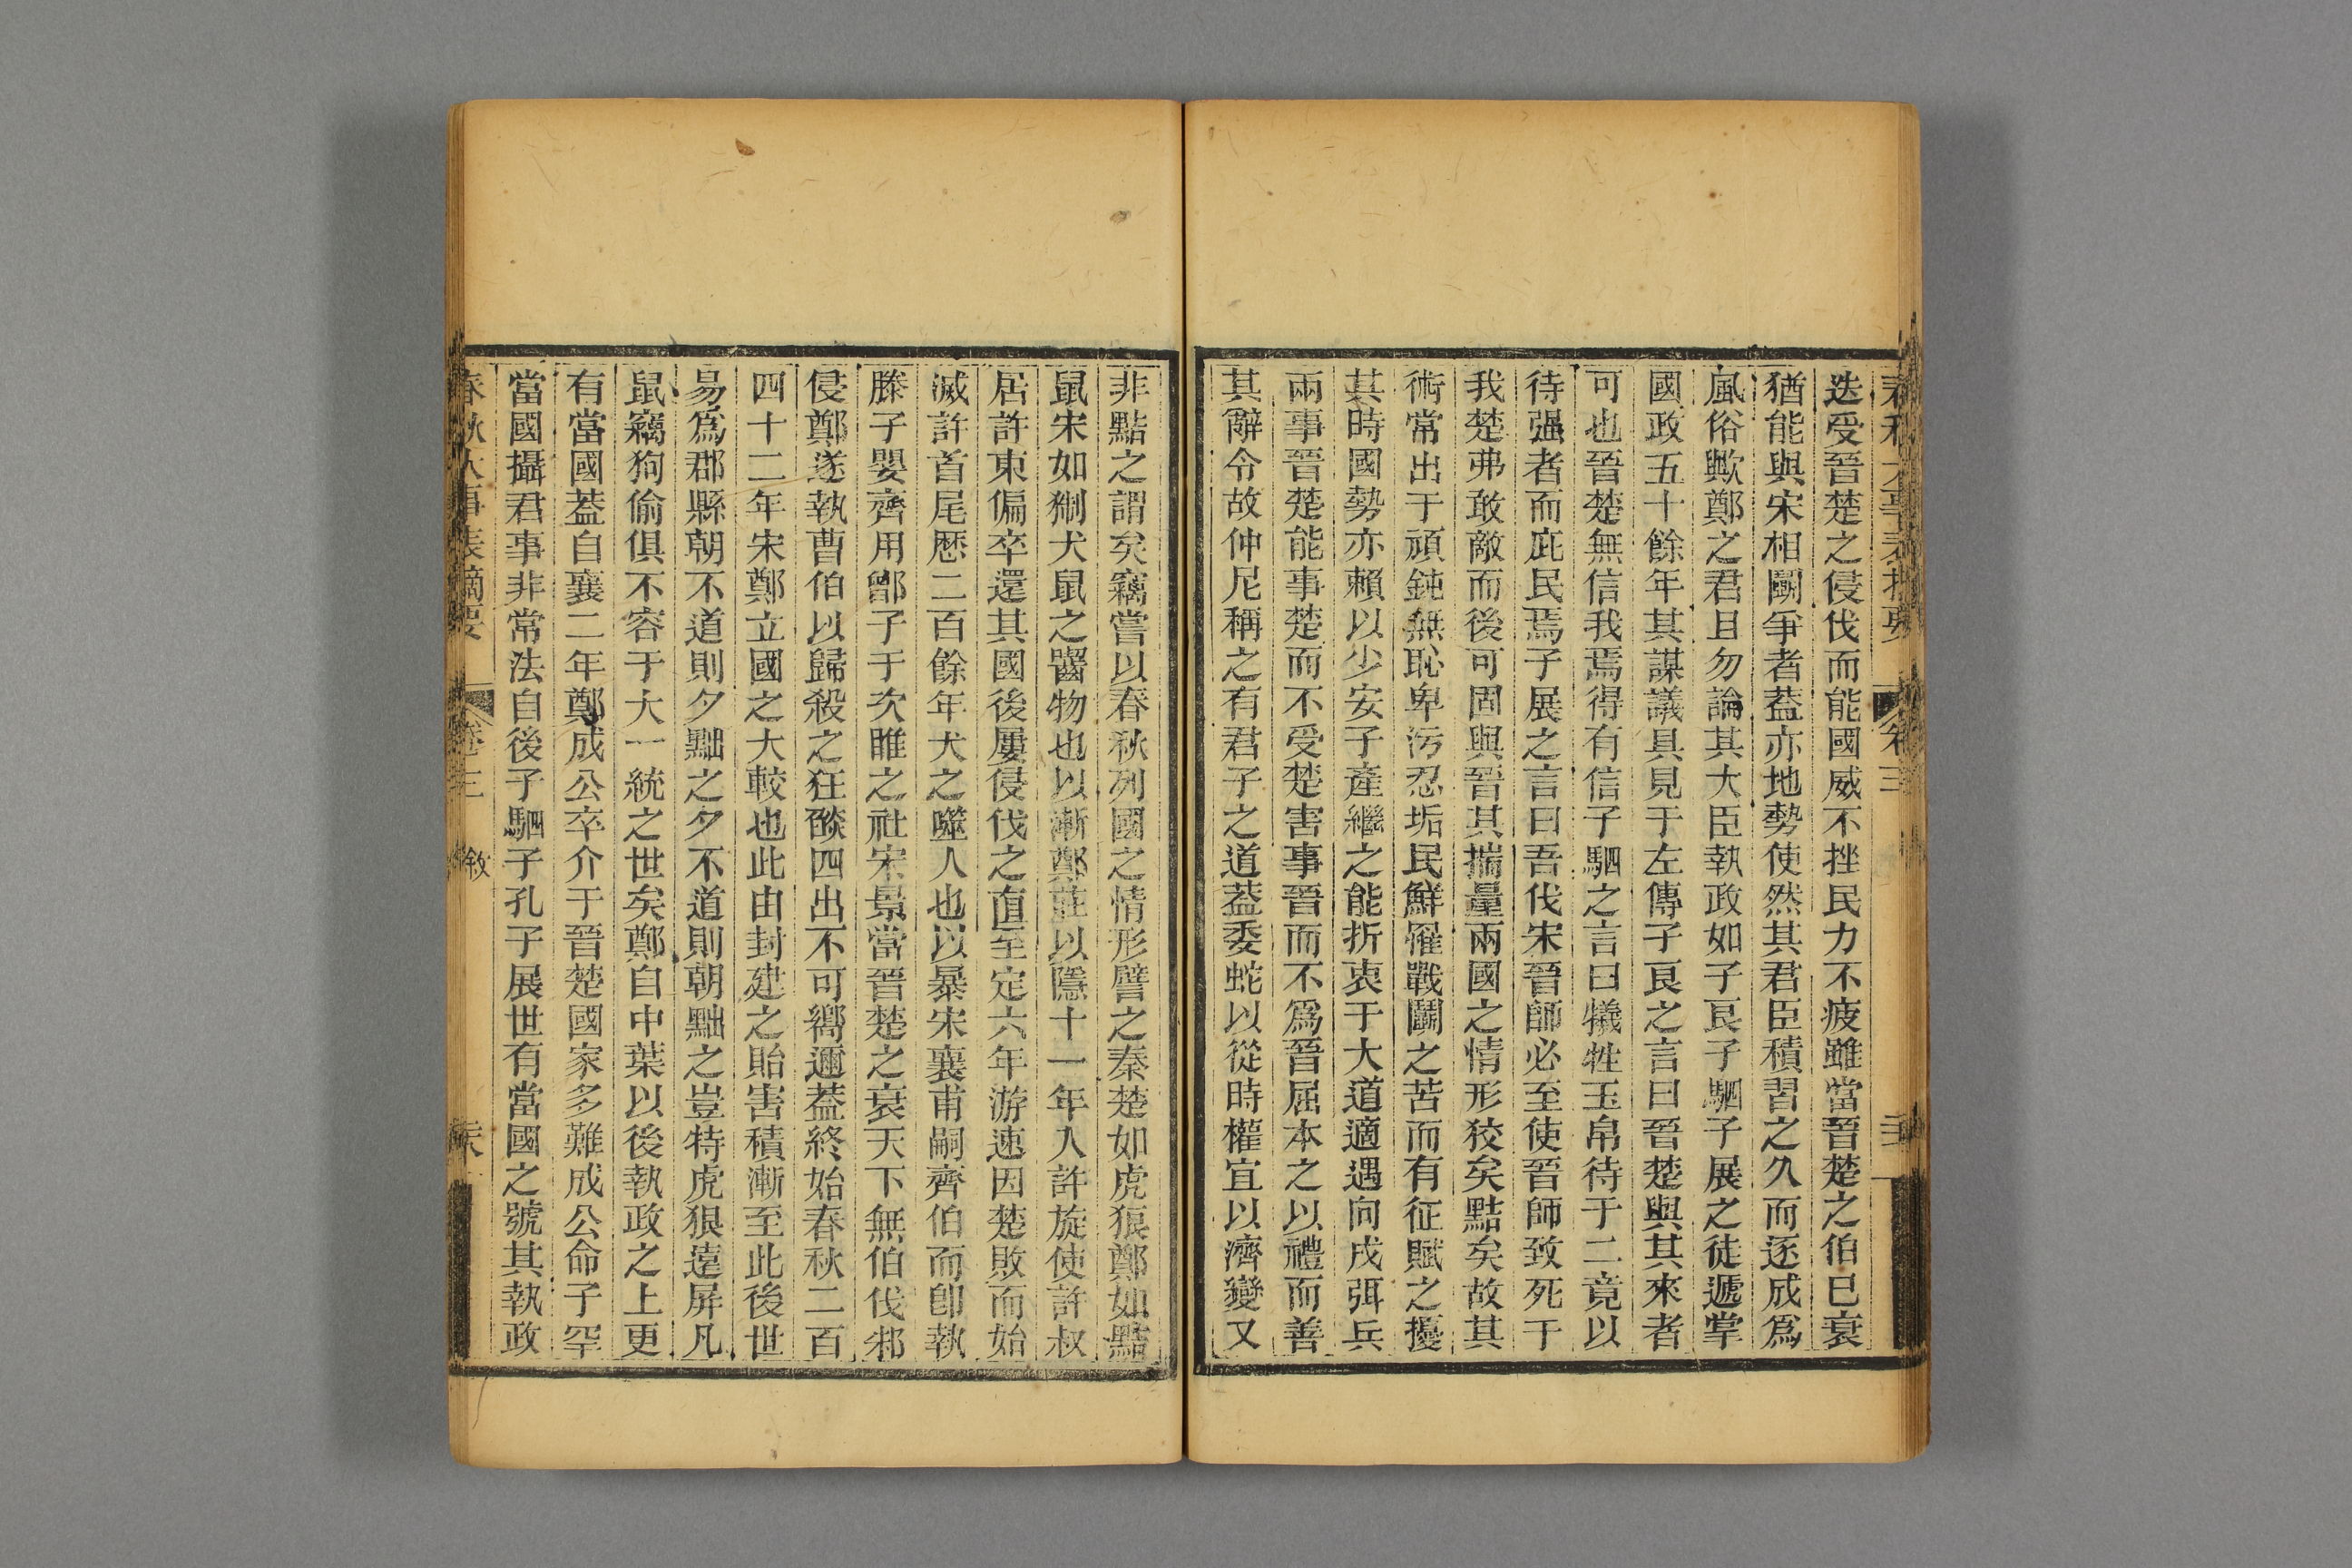 春秋大事表摘要
卷三
迭受晉楚之侵伐而能國威不挫民力不疲雖當晉楚之伯已衰
猶能與宋相鬭爭者葢亦地勢使然其君臣積習之久而逐成爲
風俗歟鄭之君且勿論其大臣執政如子良子駟子展之徒遞掌
國政五十餘年其謀議具見于左傳子良之言曰晉楚與其來者
可也晉楚無信我焉得有信子駟之言曰犧牲玉帛待于二竟以
待强者而庇民焉子展之言曰吾伐宋晉師必至使晉師致死于
我楚弗敢敵而後可固與晉其揣量兩國之情形狡矣黠矣故其
術常出于頑鈍無恥卑污忍垢民鮮罹戰鬭之苦而有征賦之擾
其時國勢亦賴以少安子產繼之能折衷于大道適遇向戌弭兵
兩事晉楚能事楚而不受楚害事晉而不爲晉屈本之以禮而善
其辭令故仲尼稱之有君子之道葢委蛇以從時權宜以濟變又
非黠之謂矣竊嘗以春秋列國之情形譬之秦楚如虎狼鄭如黠
鼠宋如猘犬鼠之齧物也以漸鄭莊以隱十一年入許旋使許叔
居許東偏卒還其國後屢侵伐之直至定六年游速因楚敗而始
滅許首尾厯二百餘年犬之噬人也以暴宋襄甫嗣齊伯而卽執
滕子嬰齊用鄫子于次睢之社宋景當晉楚之衰天下無伯伐邾
侵鄭遂執曹伯以歸殺之狂燄四出不可嚮邇葢終始春秋二百
四十二年宋鄭立國之大較也此由封建之貽害積漸至此後世
易爲郡縣朝不道則夕黜之夕不道則朝黜之豈特虎狼遠屏凡
鼠竊狗偷俱不容于大一統之世矣鄭自中葉以後執政之上更
有當國葢自襄二年鄭成公卒介于晉楚國家多難成公命子罕
當國攝君事非常法自後子駟子孔子展世有當國之號其執政
春秋大事表摘要
卷三 敘